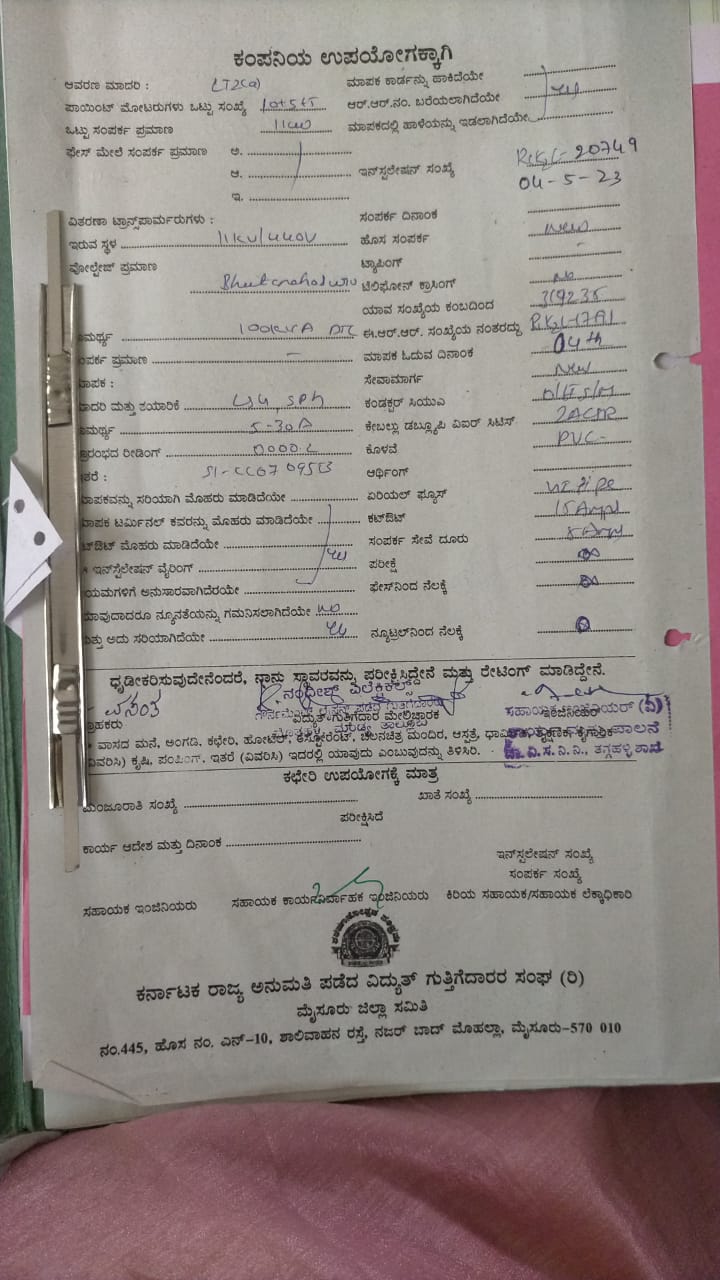 ಕಂಪನಿಯ ಉಪಯೋಗಕ್ಕಾಗಿ
ಆವರಣ ಮಾದರಿ : LT2(a) ಮಾಪಕ ಕಾರ್ಡನ್ನು ಹಾಕಿದೆಯೇ
ಪಾಯಿಂಟ್ ಮೋಟರುಗಳು ಒಟ್ಟು ಸಂಖ್ಯೆ ಆರ್.ಆರ್.ನಂ. ಬರೆಯಲಾಗಿದೆಯೇ
ಒಟ್ಟು ಸಂಪರ್ಕ ಪ್ರಮಾಣ ಮಾಪಕದಲ್ಲಿ ಹಾಳೆಯನ್ನು ಇಡಲಾಗಿದೆಯೇ
ಫೇಸ್ ಮೇಲೆ ಸಂಪರ್ಕ ಪ್ರಮಾಣ ಅ.
ಆ. ಇನ್‌ಸ್ಟಲೇಷನ್ ಸಂಖ್ಯೆ 20749
ಇ. 04-5-23
ವಿತರಣಾ ಟ್ರಾನ್ಸ್‌ಫಾರ್ಮರುಗಳು : ಸಂಪರ್ಕ ದಿನಾಂಕ
ಇರುವ ಸ್ಥಳ 11KV/440V ಹೊಸ ಸಂಪರ್ಕ New
ವೋಲ್ಟೇಜ್ ಪ್ರಮಾಣ ಟ್ಯಾಪಿಂಗ್ -
ಟೆಲಿಫೋನ್ ಕ್ರಾಸಿಂಗ್ No
ಯಾವ ಸಂಖ್ಯೆಯ ಕಂಬದಿಂದ 319235
ಮರ್ಥ್ಯ 100KVA ಈ.ಆರ್.ಆರ್. ಸಂಖ್ಯೆಯ ನಂತರದ್ದು
ಂಪರ್ಕ ಪ್ರಮಾಣ - ಮಾಪಕ ಓದುವ ದಿನಾಂಕ 04th
ಾಪಕ : ಸೇವಾಮಾರ್ಗ New
ಾದರಿ ಮತ್ತು ತಯಾರಿಕೆ ಕಂಡಕ್ಟರ್ ಸಿಯುಎ
ಮರ್ಥ್ಯ 5-30A ಕೇಬಲ್ಲು ಡಬ್ಲ್ಯೂಪಿ ವಿಐರ್ ಸಿಟಿಸ್
ಪ್ರಾರಂಭದ ರೀಡಿಂಗ್ ಕೊಳವೆ PVC-
ತರೆ : ಆರ್ಥಿಂಗ್
ಾಪಕವನ್ನು ಸರಿಯಾಗಿ ಮೊಹರು ಮಾಡಿದೆಯೇ ಏರಿಯಲ್ ಫ್ಯೂಸ್
ಾಪಕ ಟರ್ಮಿನಲ್ ಕವರನ್ನು ಮೊಹರು ಮಾಡಿದೆಯೇ ಕಟ್‌ಔಟ್ 15 Amp
ಟ್‌ಔಟ್ ಮೊಹರು ಮಾಡಿದೆಯೇ ಸಂಪರ್ಕ ಸೇವೆ ದೂರು
ಇನ್‌ಸ್ಟಲೇಷನ್ ವೈರಿಂಗ್ ಪರೀಕ್ಷೆ ∞
ಯಮಗಳಿಗೆ ಅನುಸಾರವಾಗಿದೆರಯೇ ಫೇಸ್‌ನಿಂದ ನೆಲಕ್ಕೆ ∞
ಯಾವುದಾದರೂ ನ್ಯೂನತೆಯನ್ನು ಗಮನಿಸಲಾಗಿದೆಯೇ No
ತ್ತು ಅದು ಸರಿಯಾಗಿದೆಯೇ ನ್ಯೂಟ್ರಲ್‌ನಿಂದ ನೆಲಕ್ಕೆ
ಧೃಡೀಕರಿಸುವುದೇನೆಂದರೆ, ನಾನು ಸ್ಥಾವರವನ್ನು ಪರೀಕ್ಷಿಸಿದ್ದೇನೆ ಮತ್ತು ರೇಟಿಂಗ್ ಮಾಡಿದ್ದೇನೆ.
ವಸಂತ
ಗ್ರಾಹಕರು ವಿದ್ಯುತ್ ಗುತ್ತಿಗೆದಾರ ಮೇಲ್ವಿಚಾರಕ ಸಹಾಯಕ ಇಂಜಿನಿಯರ್ (ವಿ)
ವಾಸದ ಮನೆ, ಅಂಗಡಿ, ಕಛೇರಿ, ಹೋಟೆಲ್, ರೆಸ್ಟೋರೆಂಟ್, ಚಲನಚಿತ್ರ ಮಂದಿರ, ಆಸ್ಪತ್ರೆ,
ವಿವರಿಸಿ) ಕೃಷಿ, ಪಂಪಿಂಗ್. ಇತರೆ (ವಿವರಿಸಿ) ಇದರಲ್ಲಿ ಯಾವುದು ಎಂಬುವುದನ್ನು ತಿಳಿಸಿರಿ.
ಕಛೇರಿ ಉಪಯೋಗಕ್ಕೆ ಮಾತ್ರ
ಮಂಜೂರಾತಿ ಸಂಖ್ಯೆ ಖಾತೆ ಸಂಖ್ಯೆ
ಪರೀಕ್ಷಿಸಿದೆ
ಕಾರ್ಯ ಆದೇಶ ಮತ್ತು ದಿನಾಂಕ
ಇನ್‌ಸ್ಟಲೇಷನ್ ಸಂಖ್ಯೆ
ಸಂಪರ್ಕ ಸಂಖ್ಯೆ
ಸಹಾಯಕ ಇಂಜಿನಿಯರು ಸಹಾಯಕ ಕಾರ್ಯನಿರ್ವಾಹಕ ಇಂಜಿನಿಯರು ಕಿರಿಯ ಸಹಾಯಕ/ಸಹಾಯಕ ಲೆಕ್ಕಾಧಿಕಾರಿ
ಕರ್ನಾಟಕ ರಾಜ್ಯ ಅನುಮತಿ ಪಡೆದ ವಿದ್ಯುತ್ ಗುತ್ತಿಗೆದಾರರ ಸಂಘ (ರಿ)
ಮೈಸೂರು ಜಿಲ್ಲಾ ಸಮಿತಿ
ನಂ.445, ಹೊಸ ನಂ. ಎನ್-10, ಶಾಲಿವಾಹನ ರಸ್ತೆ, ನಜರ್ ಬಾದ್ ಮೊಹಲ್ಲಾ, ಮೈಸೂರು-570 010